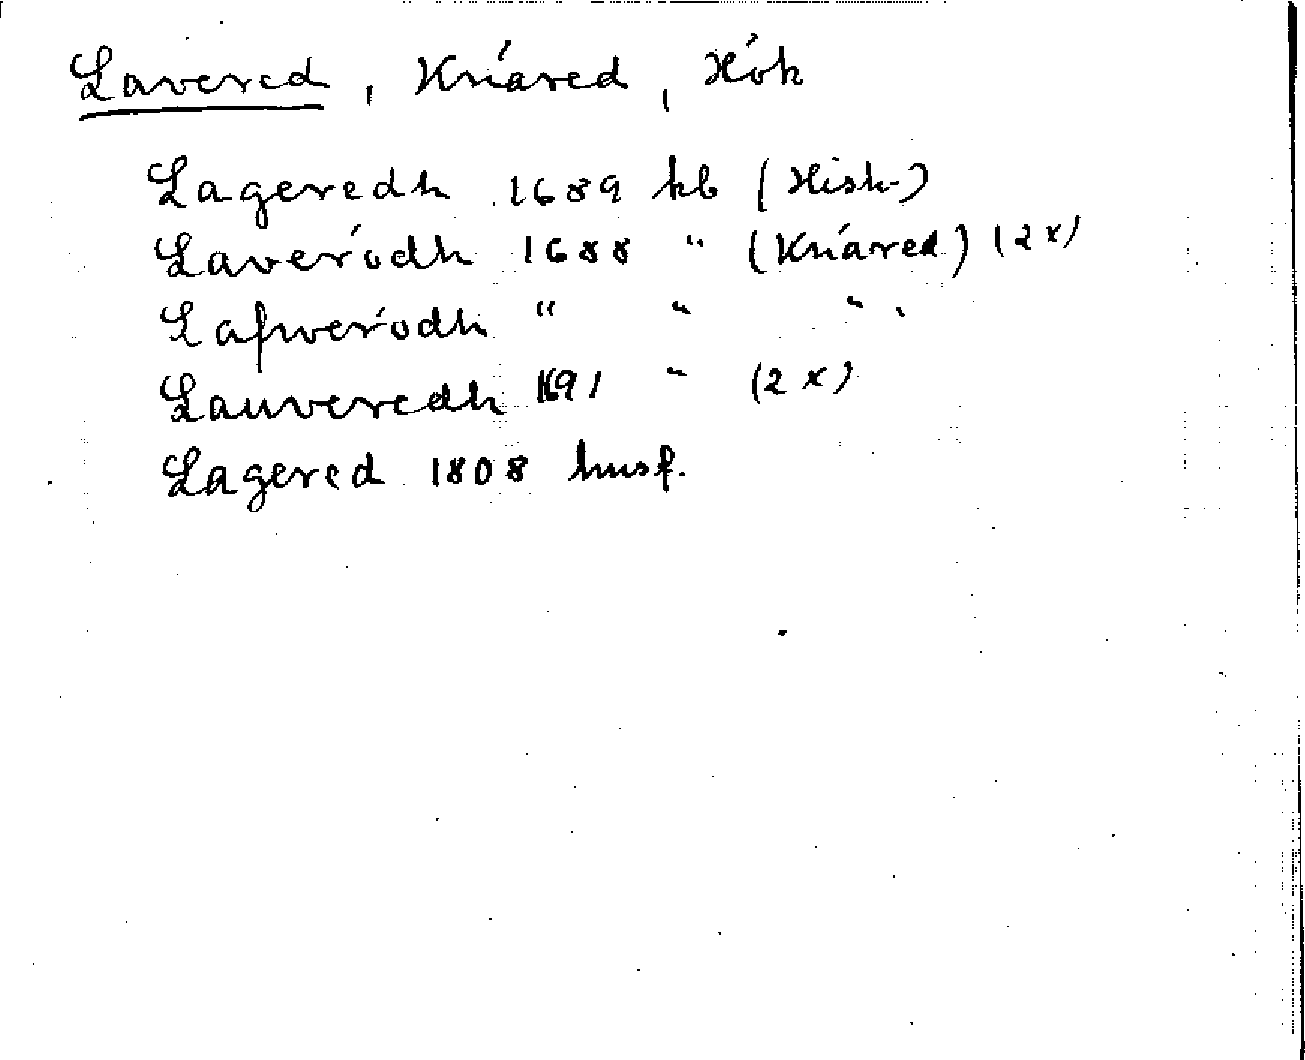 Lavered, Knäred, Hök
Lageredh 1689 kb (Hishu)
Laverödh 1688 " (Knäred) (2x)
Lafweródh " " "
Lauveredh 1691 " (2x)
Lagered 1808 husf.